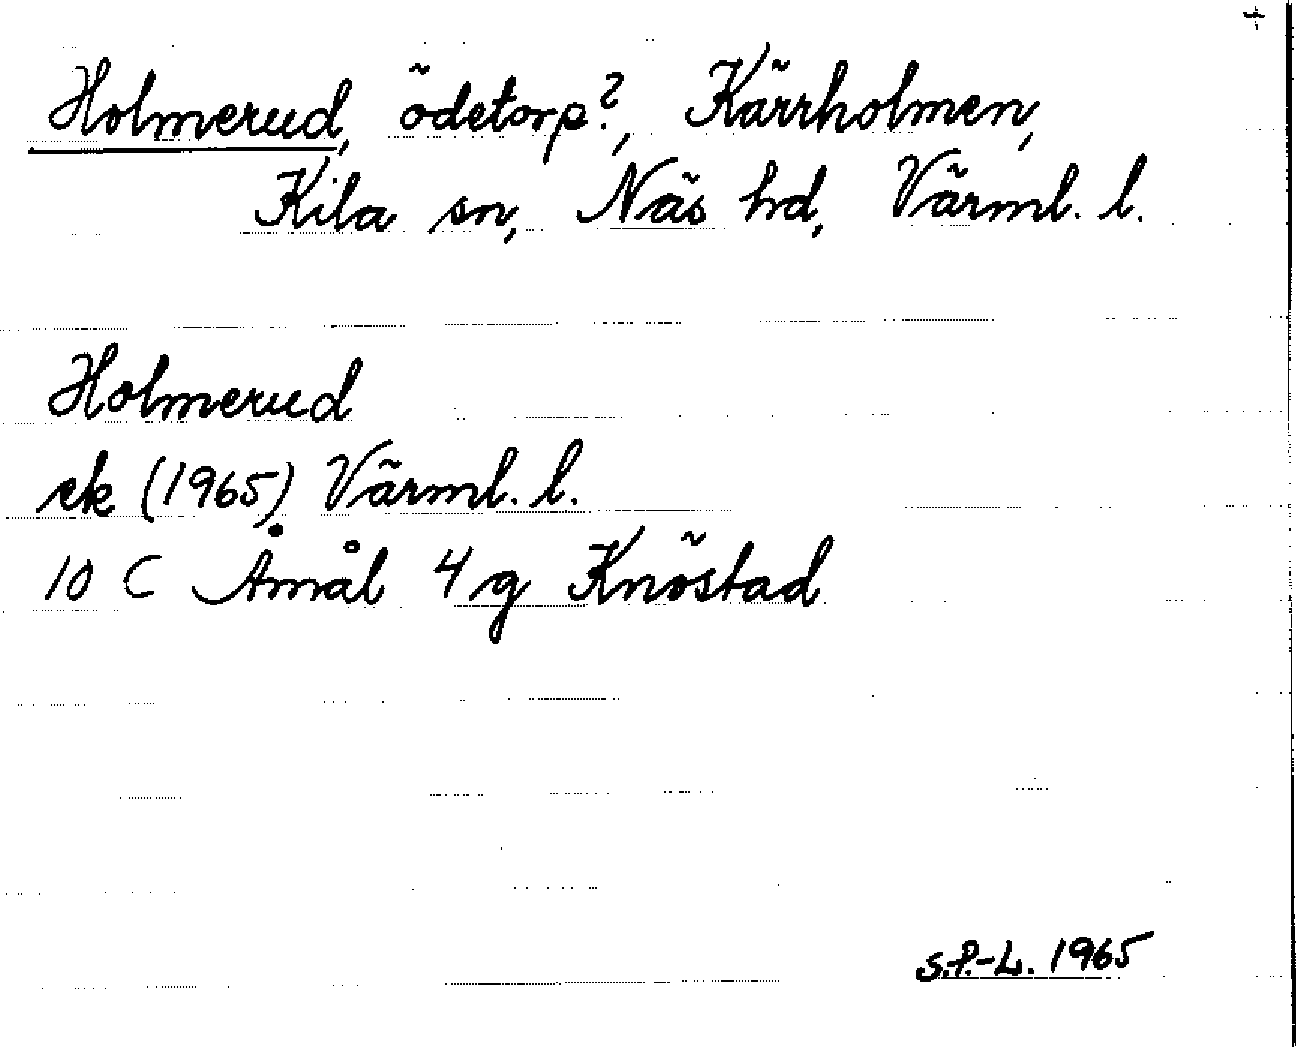 Holmerud, ödetorp?, Kärrholmen,
Kila sn, Näs hd, Värml. l.
Holmerud
ek (1965) Värml. l.
10 C Åmål 4 g Knöstad
S.P.-L. 1965